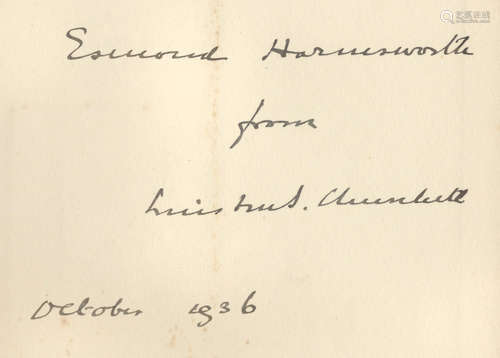 Esmond Harmsworth
from
Winston S. Churchill
October 1936